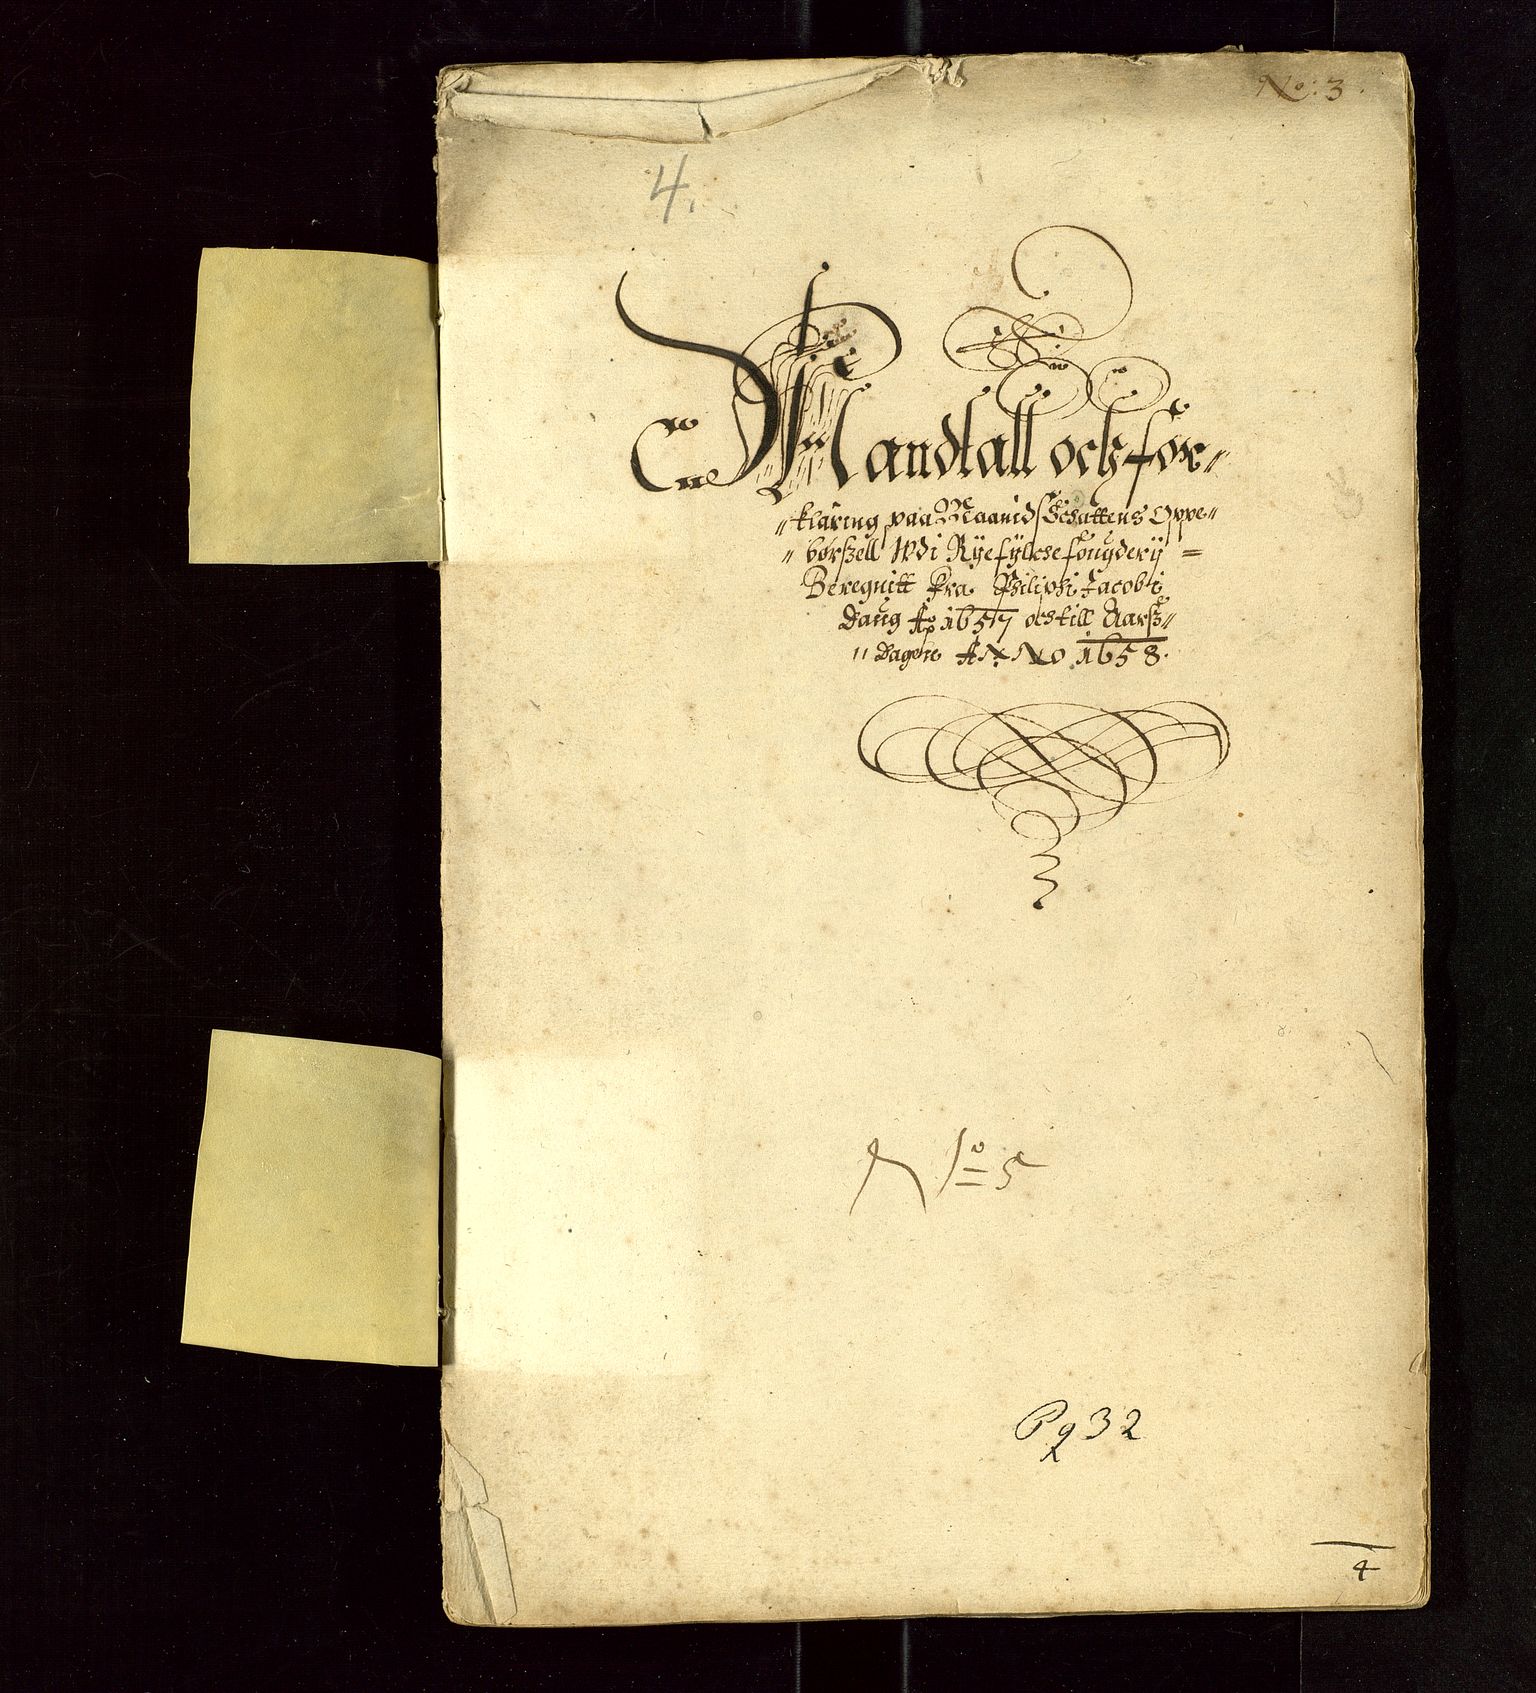 No: 3.
4.
Mandtall och for-
klaring paa Maanids Schattens Oppe-
børszell Udi Ryefylche fougderij
Beregnitt fra Philiphi Jacobi
daug Ao 1657 och till Aarsz
dagen ANNO 1658.
No 5
Pg 32
4